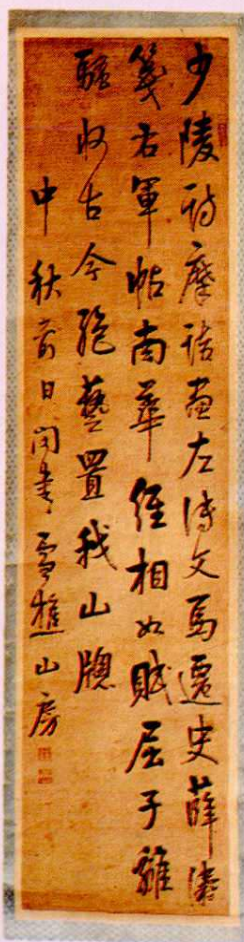 少陵詩摩詰畫左傳文馬遷史薛濤
箋右軍帖南華經相如賦屈子離
騷收古今絕藝置我山牕
中秋前日閒書雪樵山房